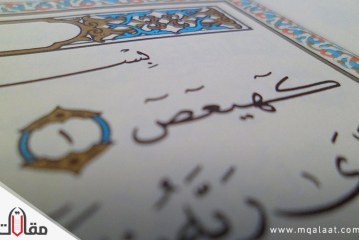 بِسْـ
كٓهيعٓصٓ ١
رَبَّهُ
مقالات
www.mqalaat.com